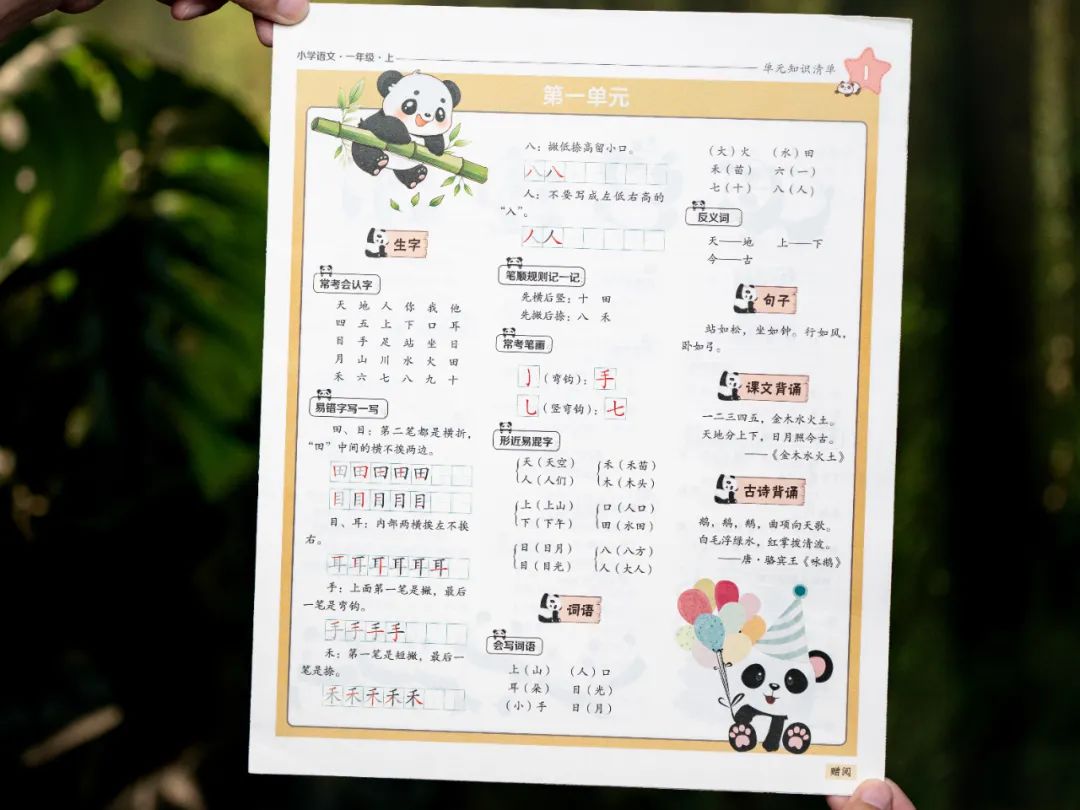 小学语文·一年级·上
单元知识清单
1
第一单元
生字
常考会认字
天 地 人 你 我 他
四 五 上 下 口 耳
目 手 足 站 坐 日
月 山 川 水 火 田
禾 六 七 八 九 十
易错字写一写
田、目：第二笔都是横折，
“田”中间的横不挨两边。
田田田田田
目目目目目
目、耳：内部两横挨左不挨
右。
耳耳耳耳耳耳
手：上面第一笔是撇，最后
一笔是弯钩。
手手手手
禾：第一笔是短撇，最后一
笔是捺。
禾禾禾禾禾
八：撇低捺高留小口。
八八
人：不要写成左低右高的
“入”。
人人
笔顺规则记一记
先横后竖：十 田
先撇后捺：八 禾
常考笔画
亅（弯钩）：手
乚（竖弯钩）：七
形近易混字
天（天空） 禾（禾苗）
人（人们） 木（木头）
上（上山） 口（人口）
下（下午） 田（水田）
日（日月） 八（八方）
目（目光） 人（大人）
词语
会写词语
上（山） （人）口
耳（朵） 日（光）
（小）手 日（月）
（大）火 （水）田
禾（苗） 六（一）
七（十） 八（人）
反义词
天——地 上——下
今——古
句子
站如松，坐如钟。行如风，
卧如弓。
课文背诵
一二三四五，金木水火土。
天地分上下，日月照今古。
——《金木水火土》
古诗背诵
鹅，鹅，鹅，曲项向天歌。
白毛浮绿水，红掌拨清波。
——唐·骆宾王《咏鹅》
赠阅